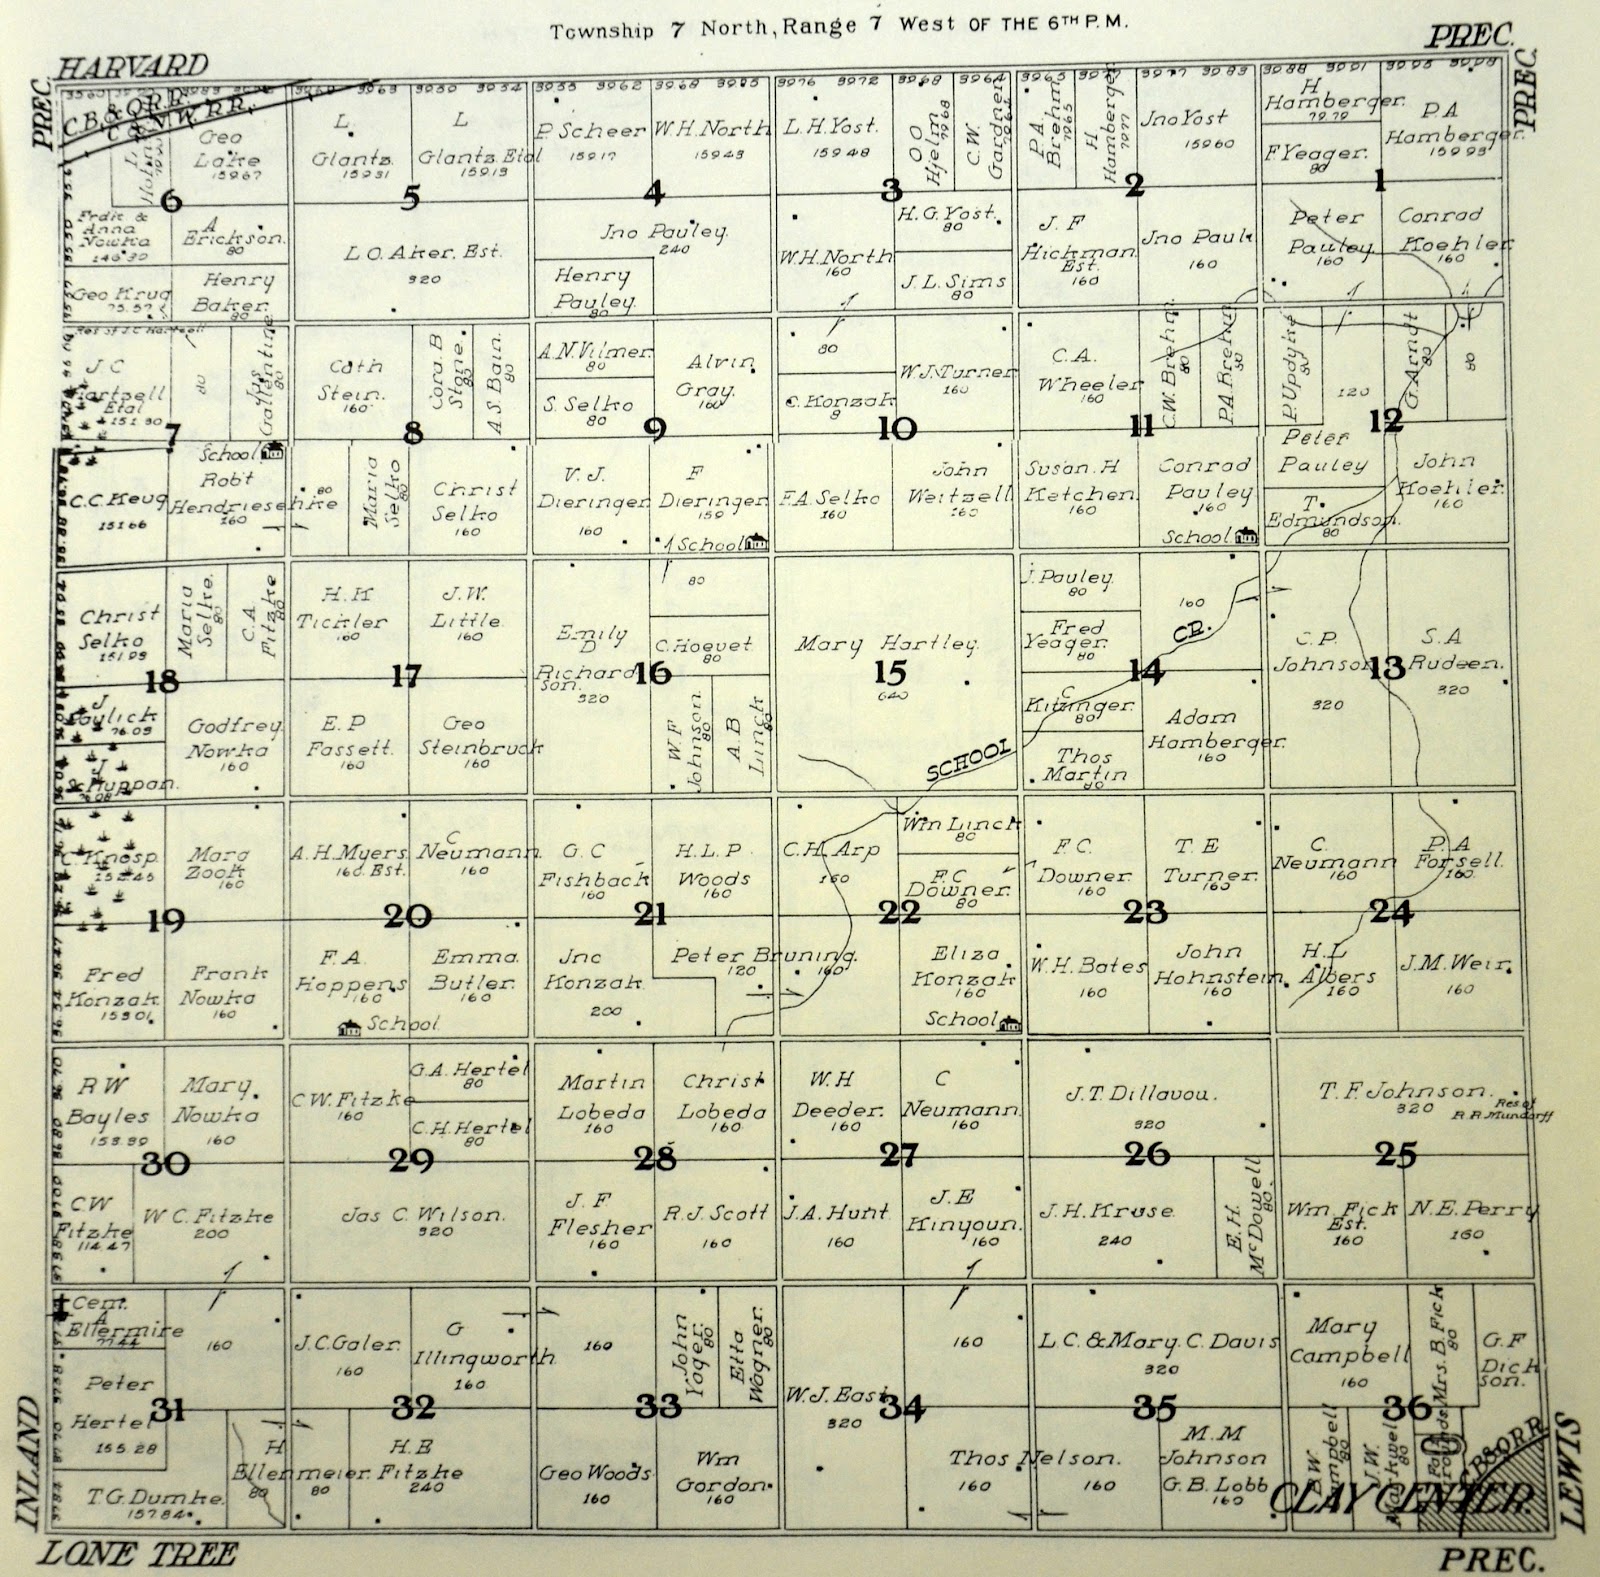 Township 7 North, Range 7 West OF THE 6TH P.M.
HARVARD
PREC.
PREC.
PREC.
C.B.&Q.R.R.
Geo
Lake
159.67
6
Frdic &
Anna
Nowka
A
Erickson.
80
Geo Krug
Henry
Baker.
80
L.
Glantz.
159.31
L
Glantz. Etal
159.13
5
L.O. Aker. Est.
320
P. Scheer
159.17
W.H. North
159.43
4
Jno Pauley.
240
Henry
Pauley.
80
L.H. Yost.
159.48
O.O.
Hjelm
79.68
C.W.
Gardner
3
W.H. North
160
H.G. Yost.
80
J.L. Sims
80
P.A.
Brehm
79.65
H
Hamberger
79.77
Jno Yost
159.60
2
J.F
Hickman
Est.
160
Jno Paul
160
H
Hamberger.
79.79
F. Yeager.
80
P.A
Hamberger.
159.93
1
Peter
Pauley
160
Conrad
Koehler
160
Res of J.C. Hartsell
J.C
Hartsell
Etal
151.30
7
80
Gallentine
80
School
C.C. Krug
151.66
Robt
Hendriesehke
160
80
Cath
Stein.
160
Cora. B
Stone.
80
A.S. Bain.
80
8
Maria
Selko
80
Christ
Selko
160
A.N. Vilmer.
80
S. Selko
80
Alvin
Gray.
160
9
V.J.
Dieringer
160
F
Dieringer
159
School
80
C. Konzak
W.J. Turner
160
10
F.A. Selko
160
John
Weitzell
160
C.A.
Wheeler
160
C.W. Brehm
80
P.A. Brehm
80
11
Susan. H
Ketchen.
160
Conrad
Pauley
160
School
P. Updyke
80
120
G. Arndt
80
80
12
Peter
Pauley
T.
Edmundson.
80
John
Koehler.
160
Christ
Selko
151.93
Maria
Selke.
80
C.A
Fitzke
80
18
J
J
Godfrey
Nowka
160
H.K
Tickler
160
J.W.
Little.
160
17
E.P
Fassett.
160
Geo
Steinbruck
160
Emily
D
Richard
son.
320
80
C. Hoevet
80
16
W F
Johnson.
80
A.B
Linch
80
Mary Hartley.
15
640
SCHOOL
CR.
J. Pauley.
80
Fred
Yeager.
80
160
14
C
Kitzinger.
80
Thos
Martin
80
Adam
Hamberger.
160
C.P.
Johnson
320
13
S.A
Rudeen.
320
C. Knosp.
Mara
Zook
160
19
Fred
Konzak.
153.01
Frank
Nowka
160
A.H. Myers
160. Est.
C
Neumann.
160
20
F.A.
Hoppens
160
Emma.
Butler.
160
School
G.C
Fishback
160
H.L.P.
Woods
160
21
Jno
Konzak
200
Peter Bruning.
120
160
C.H. Arp
160
Wm Linch
80
F.C
Downer.
80
22
Eliza
Konzak
160
School
F.C.
Downer
160
T.E
Turner.
160
23
W.H. Bates
160
John
Hohnstein.
160
C.
Neumann
160
P.A
Forsell.
160
24
H.L
Albers
160
J.M. Weir.
160
R W
Bayles
153.39
Mary.
Nowka
160
30
C.W
Fitzke
114.47
W C. Fitzke
200
C.W. Fitzke
160
G.A. Hertel
80
C.H. Hertel
80
29
Jas C. Wilson.
320
Martin
Lobeda
160
Christ
Lobeda
160
28
J.F
Flesher
160
R.J. Scott
160
W.H
Deeder.
160
C
Neumann.
160
27
J.A. Hunt
160
J.E
Kinyoun.
160
J.T. Dillavou.
320
26
J.H. Kruse.
240
E.H.
McDowell
80
T.F. Johnson.
320
Res of
R.R. Mundorff
25
Wm. Fick
Est.
160
N.E. Perry
160
Cem.
A
Ellermire
77.44
160
Peter
Hertel
155.28
31
T.G. Dumke.
157.84
H
Ellenmeier.
80
80
J.C. Galer.
160
G
Illingworth
160
32
H.E
Fitzke
240
160
John
Yager.
80
Etta
Wagner.
80
33
Geo Woods
160
Wm
Gordon.
160
160
W.J. East
320
34
Thos Nelson.
160
160
L.C. & Mary. C. Davis
320
35
M.M
Johnson
G.B. Lobb
160
Mary
Campbell
160
Mrs. B. Fick
80
G.F
Dick
son.
36
B.W.
Campbell
80
J.W.
80
CLAY CENTER.
INLAND
LEWIS
LONE TREE
PREC.